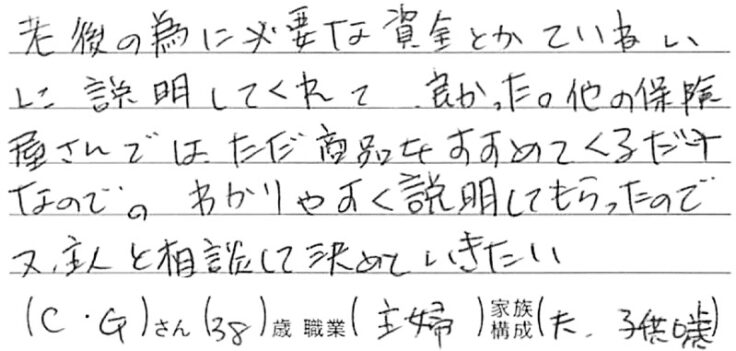 老後の為に必要な資金とかていねい
に説明してくれて、良かった。他の保険
屋さんではただ商品をすすめてくるだけ
なので。わかりやすく説明してもらったので
又、主人と相談して決めていきたい
(C・G)さん(38)歳 職業(主婦)家族構成(夫、子供0歳)